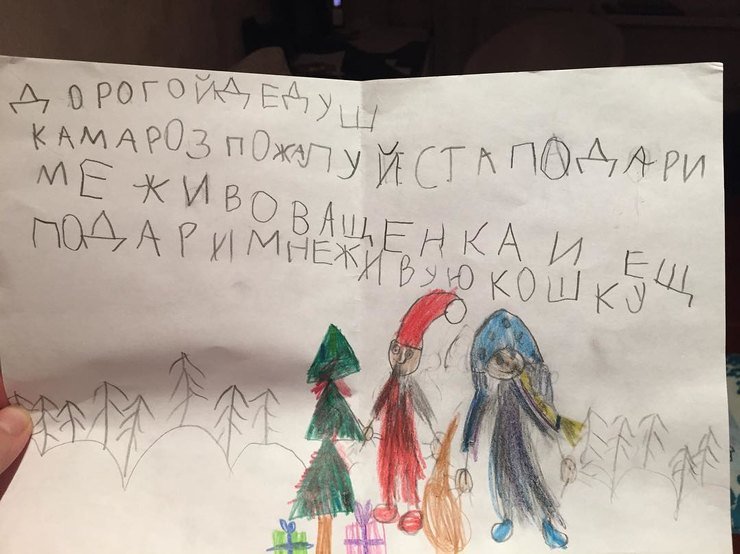 ДОРОГОЙДЕДУШ
КАМАРОЗ ПОЖАЛУЙСТА ПАДАРИ
МЕ ЖИВОВАЩЕНКА И ЕЩ
ПОДАРИМНЕЖИВУЮ КОШКУ